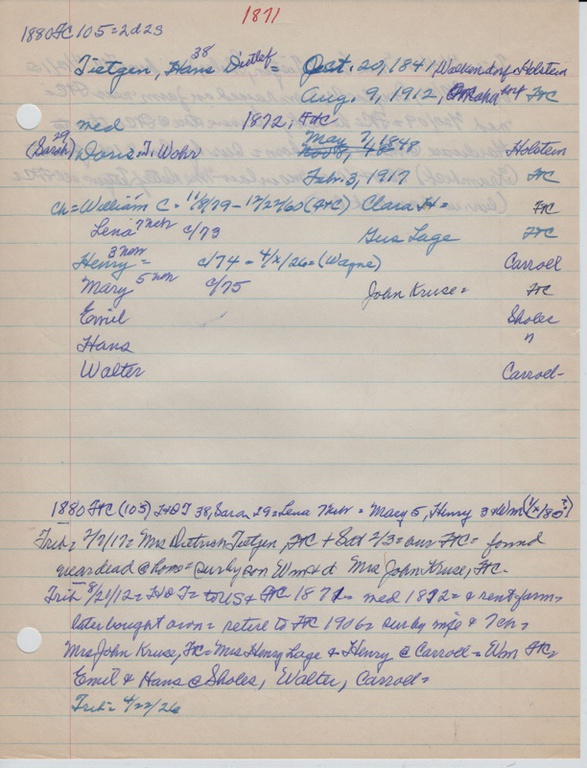 1871
1880 FTC 105=2d23
38
Tietgen, Hans Dietlef = Oct. 20, 1841, Walkendorf, Holstein
Aug. 9, 1912, Omaha FTC
med 1872, FTC
29 May 7, 1848
(Sarah) Doris. T. Wohr Nov 8, 48 Holstein
Feb. 3, 1917 FTC
Ch= William C = 11/8/79 - 12/22/60 (FTC) Clara H = FTC
Lena 7 Nebr c/73 Gus Lage FTC
Henry 3 Nebr = c/74 - 4/x/26 = (Wayne) Carroll
Mary 5 Nebr c/75 John Kruse = FTC
Emil Sholes
Hans "
Walter Carroll-
1880 FTC (105) HDT 38, Sarah 29 = Lena 7 Nebr = Mary 5, Henry 3 + Wm (1/x/80?)
Trib = 2/7/17 = Mrs Dietrish Tietgen, FTC + Sat 2/3 = our FTC = found
near dead @ home = sur by son Wm + d Mrs John Kruse, FTC-
Trib 8/21/12 = HDT = to US + FTC 1871 = med 1872 = + rent farm =
later bought own = retire to FTC 1906 = sur by wife + 7 ch =
Mrs John Kruse, FTC = Mrs Henry Lage + Henry @ Carroll = Wm FTC =
Emil + Hans @ Sholes, Walter, Carroll =
Trib = 4/22/26